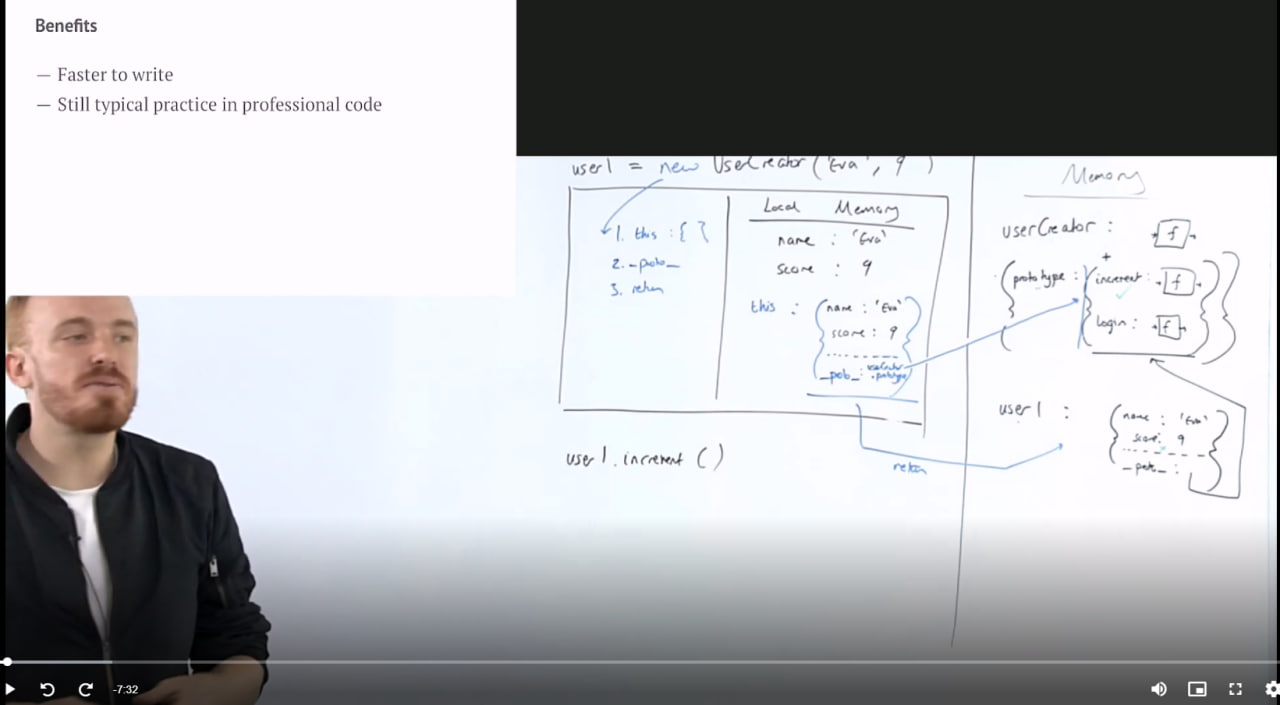 Benefits
— Faster to write
— Still typical practice in professional code
user1 = new UserCreator('Eva', 9)
1. this : { }
2. _proto_
3. return
Local Memory
name : 'Eva'
score : 9
this : { name : 'Eva'
score : 9
_proto_ :
user1.increment ()
return
Memory
userCreator : f
+
{ prototype : { increment : f
login : f } }
user1 : { name : 'Eva'
score : 9
_proto_ : }
-7:32